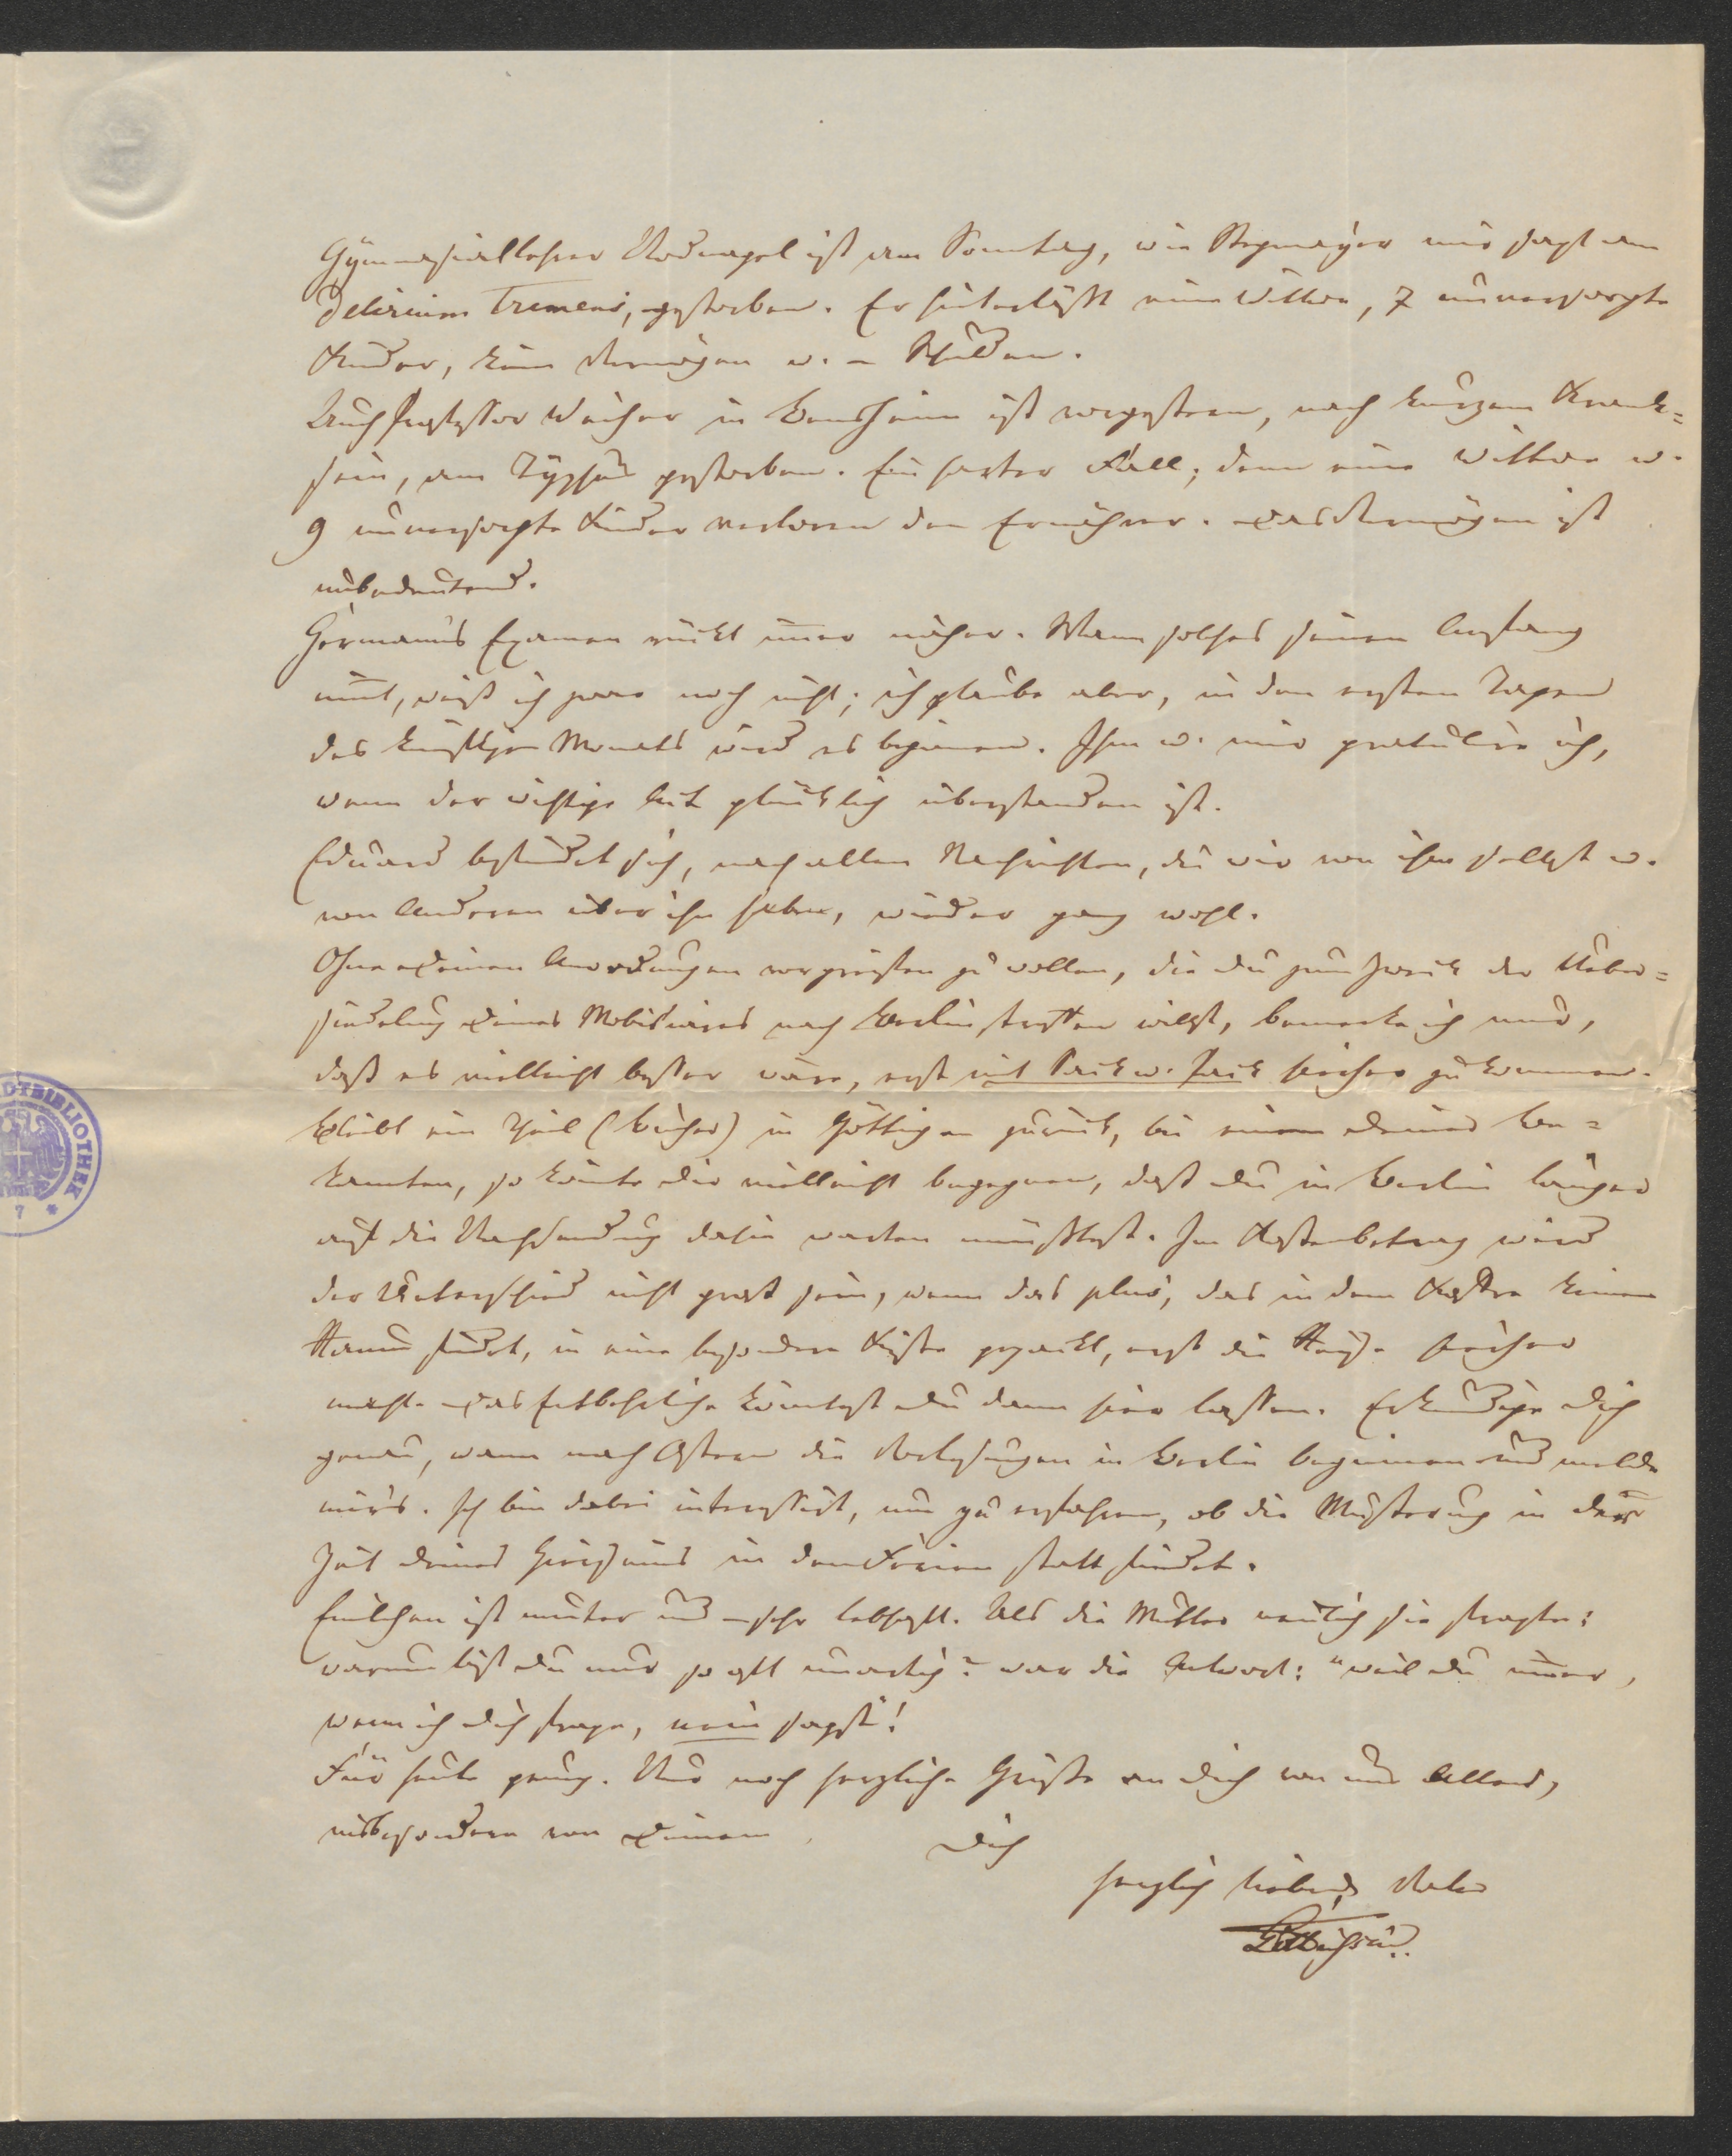 Gymnasiallehrer Nodnagel ist am Sonntag, wie Stegmayer mir sagt am
Delirium Tremens, gestorben. Er hinterläßt eine Wittwe, 7 unversorgte
Kinder, kein Vermögen u. – Schulden.
Auch Professor Weiher in Bensheim ist vorgestern, nach kurzem Krank=
sein, am Typhus gestorben. Ein harter Fall; denn eine Wittwe u.
9 unversorgte Kinder verloren den Ernährer. Das Vermögen ist
unbedeutend.
Hermanns Examen rückt im̅er näher. Wann solches seinen Anfang
nim̅t, weiß ich zwar noch nicht; ich glaube aber, in den ersten Tagen
des künftigen Monats wird es beginnen. Ihm u. mir gratulire ich,
wenn der wichtige Act glücklich überstanden ist.
Eduard befindet sich, nach allen Nachrichten, die wir von ihm selbst u.
von Anderen über ihn haben, wieder ganz wohl.
Ohne Deinen Anordnungen vorgreifen zu wollen, die du zum Zweck der Ueber=
siedelung Deines Mobiliares nach Berlin treffen willst, bemerke ich nur,
daß es vielleicht besser wäre, erst mit Sack u. Pack hierher zu kommen.
Bleibt ein Theil (Bücher) in Göttingen zurück, bei einem Deiner Be=
kannten, so könnte dir vielleicht begegnen, daß du in Berlin länger
auf die Nachsendung dahin warten müßtest. Im Kostenbetrag wird
der Unterschied nicht groß sein, wenn das plus, das in dem Koffer keinen
Raum findet, in eine besondere Kiste gepackt, erst die Reise hierher
macht. Das Entbehrliche könntest du dann hier lassen. Erkundige dich
genau, wann nach Ostern die Vorlesungen in Berlin beginnen und melde
mir's. Ich bin dabei interessirt, um zu erfahren, ob die Musterung in der
Zeit deines Hierseins in den Ferien statt findet.
Emilchen ist munter und – sehr lebhaft. Als die Mutter neulich sie fragte:
warum bist du nur so oft unartig? war die Antwort: "weil du im̅er,
wenn ich dich frage, nein sagst"!
Für heute genug. Nur noch herzliche Grüße an dich von uns Allen,
insbesondere von Deinem
Dich
herzlich liebenden Vater